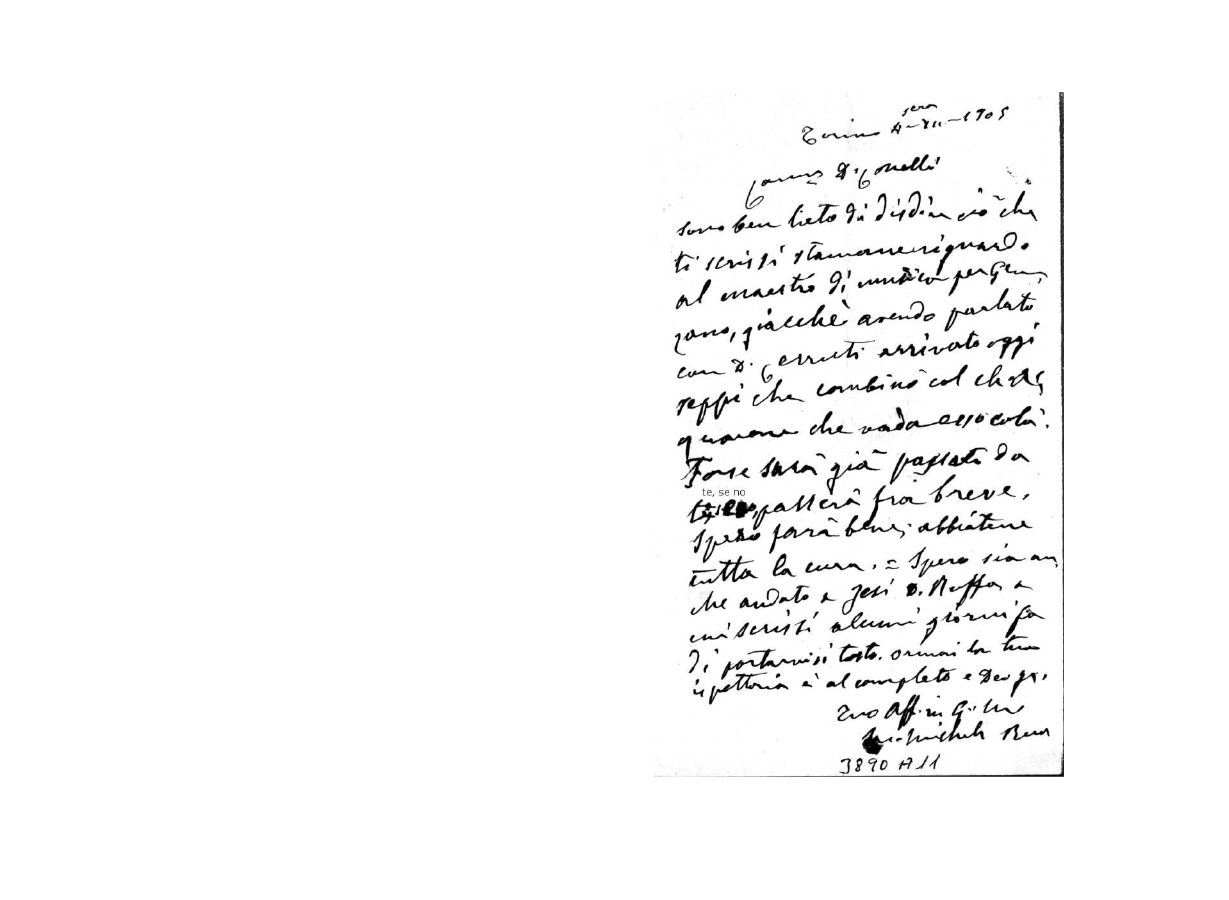 sera
Torino 4-XII-1905
Carmo D. Conelli
sono ben lieto di disdire ciò che
ti scrissi stamane riguardo
al maestro di musica per Gen
zano, giacchè avendo parlato
con D. Cerruti arrivato oggi
seppi che combinò col ch
che vada esso colà.
Forse sarà già passato da
te, se no
te, se no, passerà fra breve.
Spero farà bene; abbiatene
tutta la cura. = Spero sia an
che andato a Jesi D. Ruffa a
cui scrissi alcuni giorni fa
di portarvisi tosto. Ormai la tua
ispettoria è al completo e Deo gr.
Tuo Aff.m G. M.
Sac. Michele Rua
3890 A11